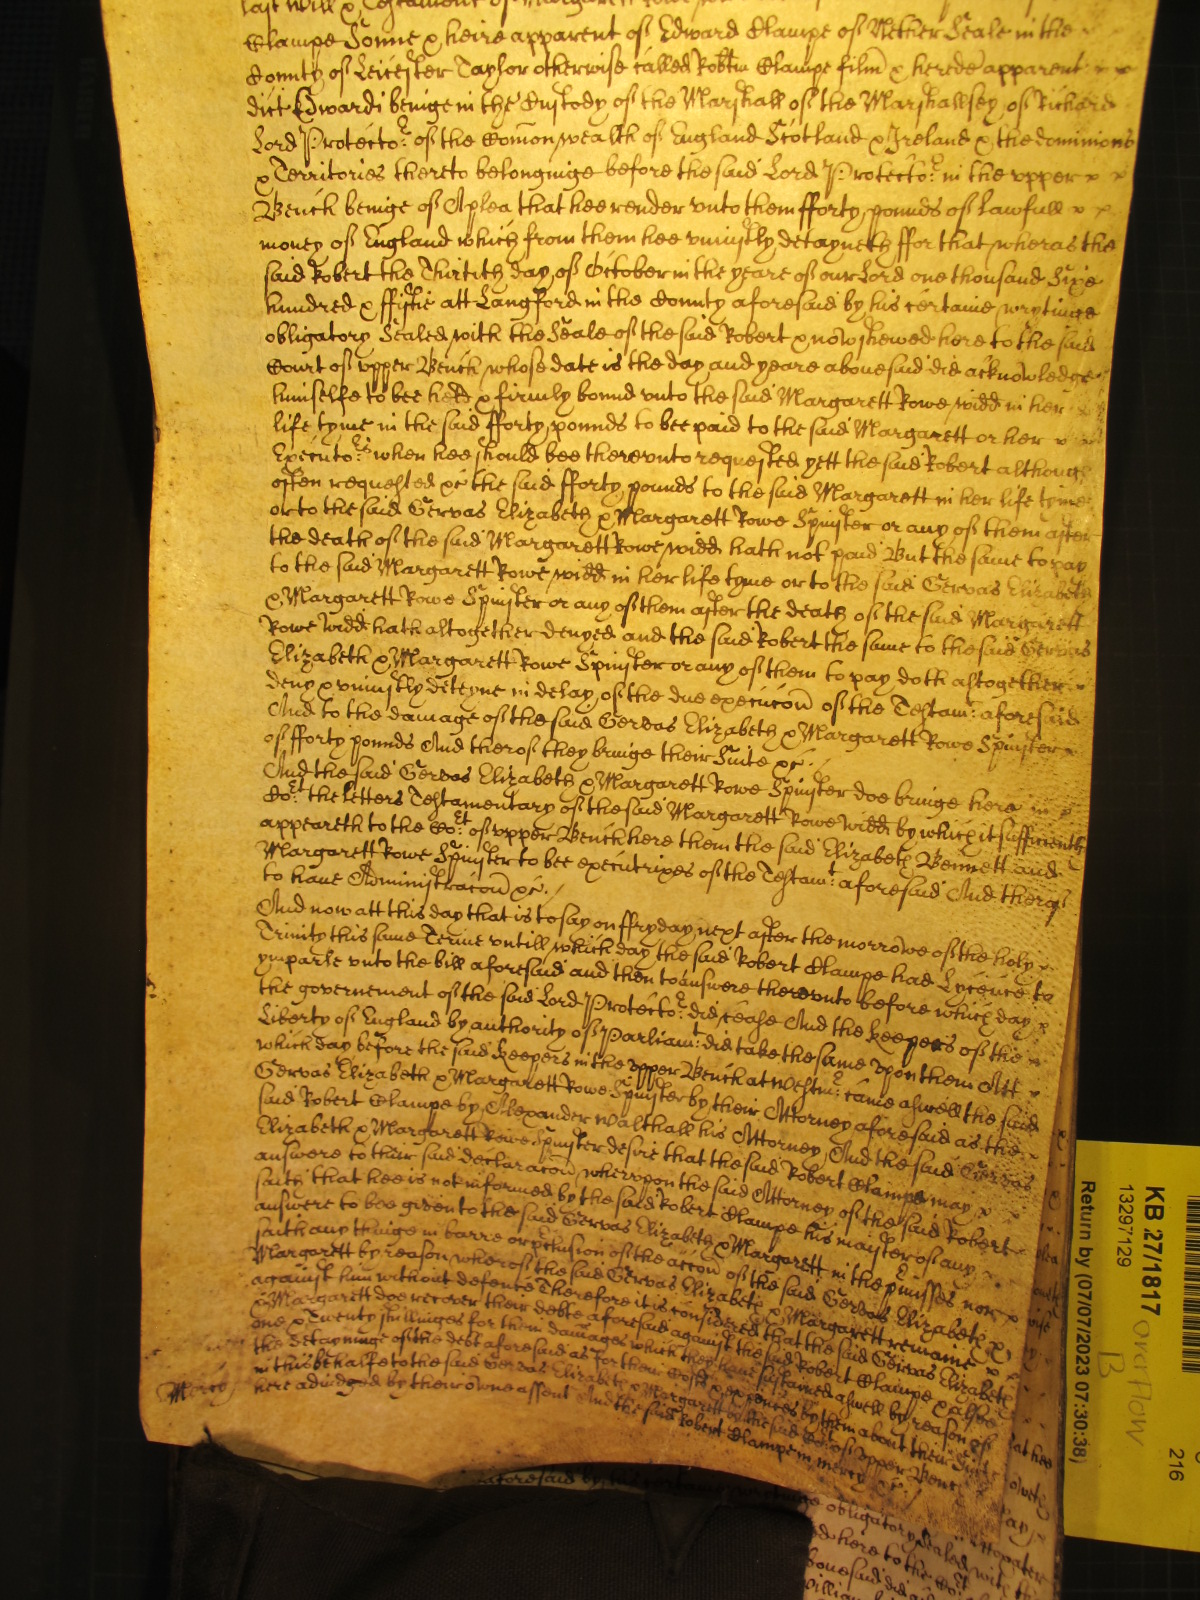 last will x Testament of Margarett Rowe
Clampe Sonne x heire apparent of Edward Clampe of Nether Seale in the
County of Leicester Taylor otherwise called Robtm Clampe filiu x herede apparent x x
dict Edwardi beinge in the Custody of the Marshall of the Marshallsey of Richard
Lord Protector of the Comon wealth of England Scotland x Ireland x the dominions
x Territories thereto belonginge before the said Lord Protector in the vpper x x
Bench beinge of A plea that hee render vnto them fforty pounds of lawfull x x
money of England which from them hee vniustly detayneth ffor that wheras the
said Robert the Thirtith day of October in the yeare of our Lord one thousand Sixe
hundred x ffiftie att Langford in the County aforesaid by his certaine wrytinge
obligatory Sealed with the Seale of the said Robert x now shewed here to the said
Court of vpper Bench whose date is the day and yeare abouesaid did acknowledge
himselfe to bee held x firmly bound vnto the said Margarett Rowe widd in her
life tyme in the said fforty pounds to bee paid to the said Margarett or her x x
Executors when hee should bee therevnto requested yett the said Robert although
often requested xc the said fforty pounds to the said Margarett in her life tyme
or to the said Gervas Elizabeth x Margarett Rowe Spinster or any of them after
the death of the said Margarett Rowe widd hath not paid But the same to pay
to the said Margarett Rowe widd in her life tyme or to the said Gervas Elizabeth
x Margarett Rowe Spinster or any of them after the death of the said Margarett
Rowe widd hath altogether denyed and the said Robert the same to the said Gervas
Elizabeth x Margarett Rowe Spinster or any of them to pay doth altogether x
deny x vniustly deteyne in delay of the due execucon of the Testamt: aforesaid
And to the damage of the said Gervas Elizabeth x Margarett Rowe Spinster x
of fforty pounds And therof they bringe their Suite xc.
And the said Gervas Elizabeth x Margarett Rowe Spinster doe bringe here in x
Cort the letters Testamentary of the said Margarett Rowe widd by which it sufficiently
appeareth to the Cort of vpper Bench here them the said Elizabeth Bennett and
Margarett Rowe Spinster to bee executrixes of the Testamt: aforesaid And therof
to haue Administracon xc.
And now att this day that is to say on ffryday next after the morrowe of the holy x
Trinity this same Terme vntill which day the said Robert Clampe had Lycence to
ymparle vnto the bill aforesaid and then to answere therevnto before which day x
the governement of the said Lord Protector did cease And the keepers of the
Liberty of England by authority of Parliamt: did take the same vpon them Att x
which day before the said keepers in the vpper Bench at Westmr: came aswell the said
Gervas Elizabeth x Margarett Rowe Spinster by their Attorney aforesaid as the
said Robert Clampe by Alexander Walthall his Attorney And the said Gervas
Elizabeth x Margarett Rowe Spinster desire that the said Robert Clampe may x
answere to their said declaracon wherupon the said Attorney of the said Robert
saith that hee is not informed by the said Robert Clampe his maister of any x
answere to bee given to the said Gervas Elizabeth x Margarett in the pmisses nor x
saith any thinge in barre or pclusion of the accon of the said Gervas Elizabeth x
Margarett by reason wherof the said Gervas Elizabeth x Margarett remaine x
against him without defence Therefore it is considered that the said Gervas Elizabeth
x Margarett doe recover their debte aforesaid against the said Robert Clampe x alsoe
one x Twenty shillinges for their damages which they haue sustained aswell by reason of
the detayninge of the debt aforesaid as for their Costs x expences by them about their Suite
in this behalfe to the said Gervas Elizabeth x Margarett by the said Cort of vpper Bench
here adiudged by their owne assent And the said Robert Clampe in mercy xc
Mercy
aforesaid by
obligatory Sealed with
here to the Cort
bouesaid did
KB 271817
13297129
Return by (07/07/2023 07:30:38)
overflow
B
216